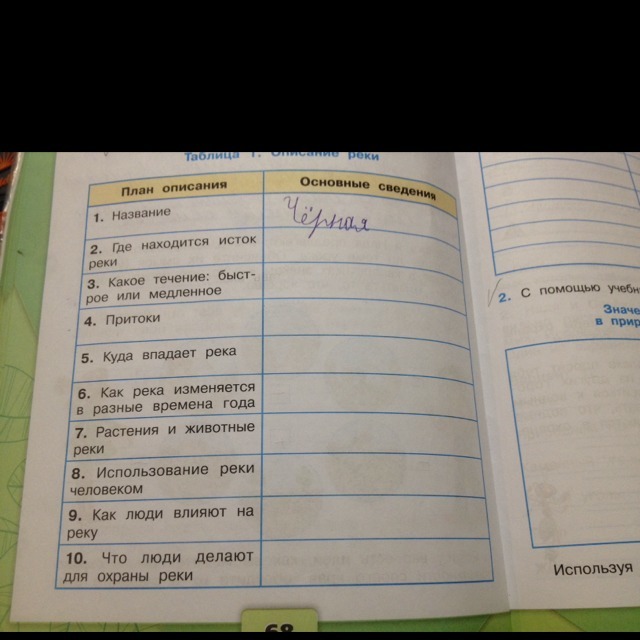 Таблица 1. Описание реки
План описания
Основные сведения
1. Название
Чёрная
2. Где находится исток
реки
3. Какое течение: быст-
рое или медленное
4. Притоки
5. Куда впадает река
6. Как река изменяется
в разные времена года
7. Растения и животные
реки
8. Использование реки
человеком
9. Как люди влияют на
реку
10. Что люди делают
для охраны реки
68
2. С помощью
Используя